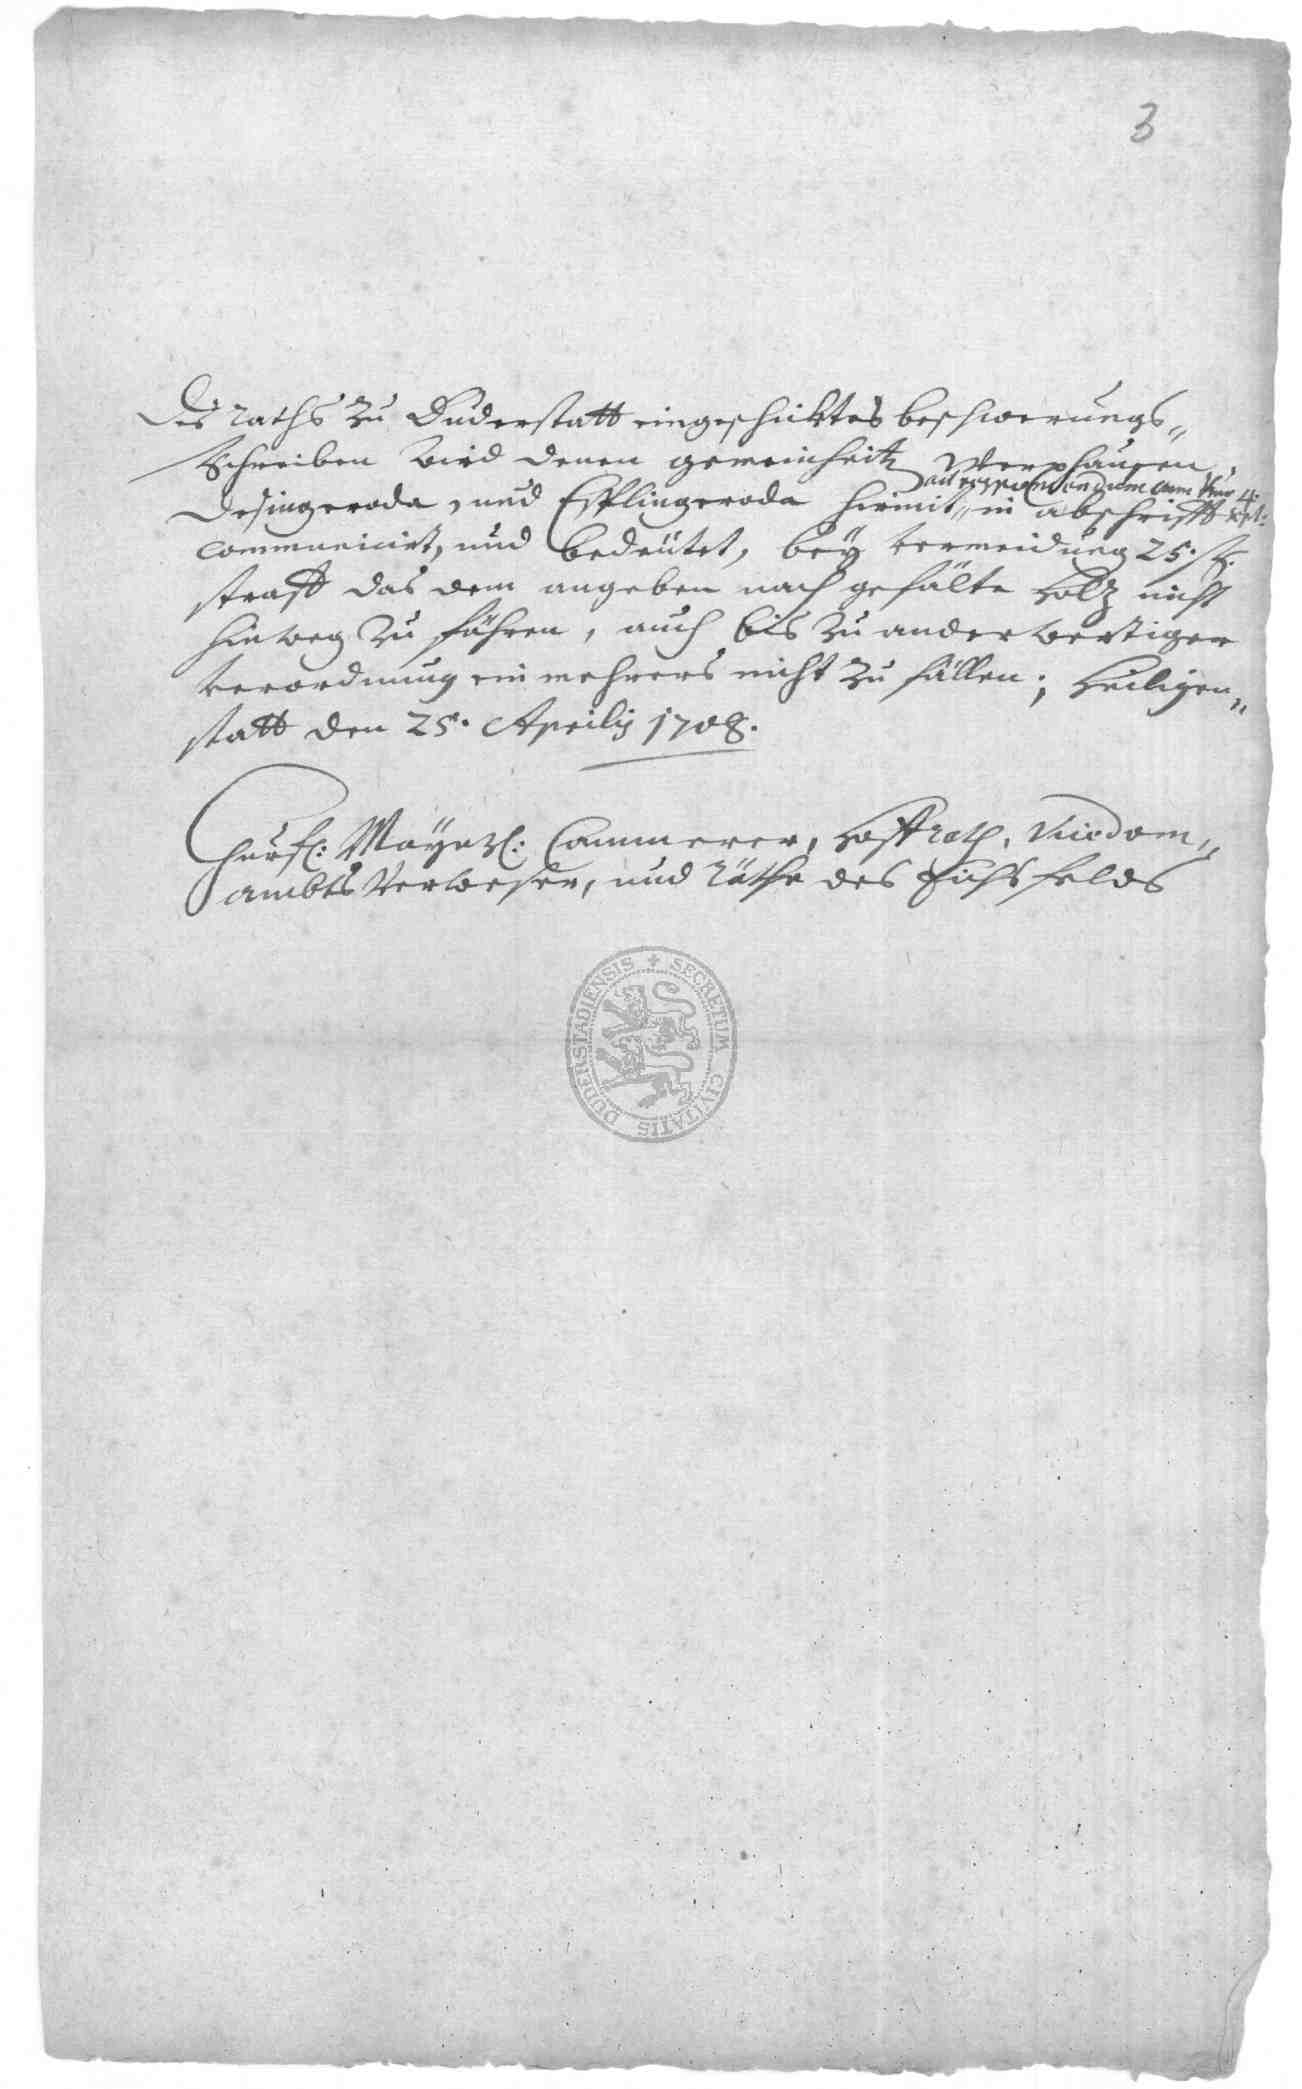 3
Des raths zu Duderstatt eingeschicktes beschwerungs„
Schreiben wird denen gemeinheit Werxhausen,
ad respondendum cum term: 4.
Desingeroda, und Esplingeroda hiermit„ in abschrifft
communicirt, und bedeütet, bey vermeidung 25. fl.
straff das dem angeben nach gefälte Holtz nicht
hinweg zu führen, auch bis zu anderwertiger
verordnung ein mehrers nicht zu fällen; Heiligen„
statt den 25. Aprilis 1708.
Churfl: Mayntzl: Cammerer, Hoffrath, Vicedom„
ambts Verweser, und räthe des Eichsfelds
SECRETUM CIVITATIS DUDERSTADIENSIS